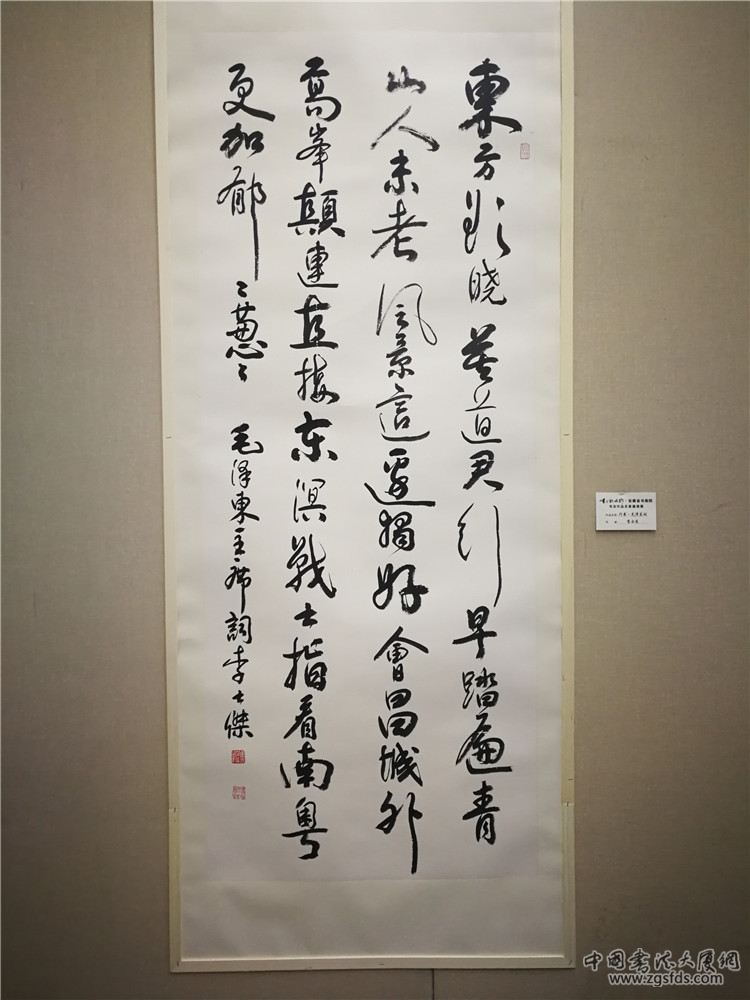 東方欲晓莫道君行早踏遍青
山人未老風景這邊獨好會昌城外
高峯顛連直接东溟戰士指看南粤
更加郁〻蔥〻 毛泽東主席詞李士傑
中国書法大厦網
www.zgsfds.com